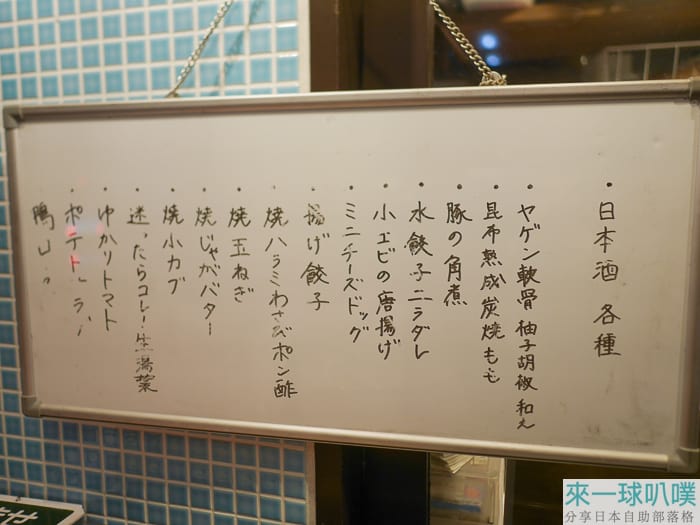 ・日本酒 各種
・ヤゲン軟骨 柚子胡椒和え
・昆布熟成炭焼もも
・豚の角煮
・水餃子ニラダレ
・小エビの唐揚げ
・ミニチーズドッグ
・揚げ餃子
・焼ハラミわさびポン酢
・焼玉ねぎ
・焼じゃがバター
・焼小カブ
・迷ったらコレ!生湯葉
・ゆかりトマト
・ポテトフライ
來一球叭噗
分享日本自助部落格